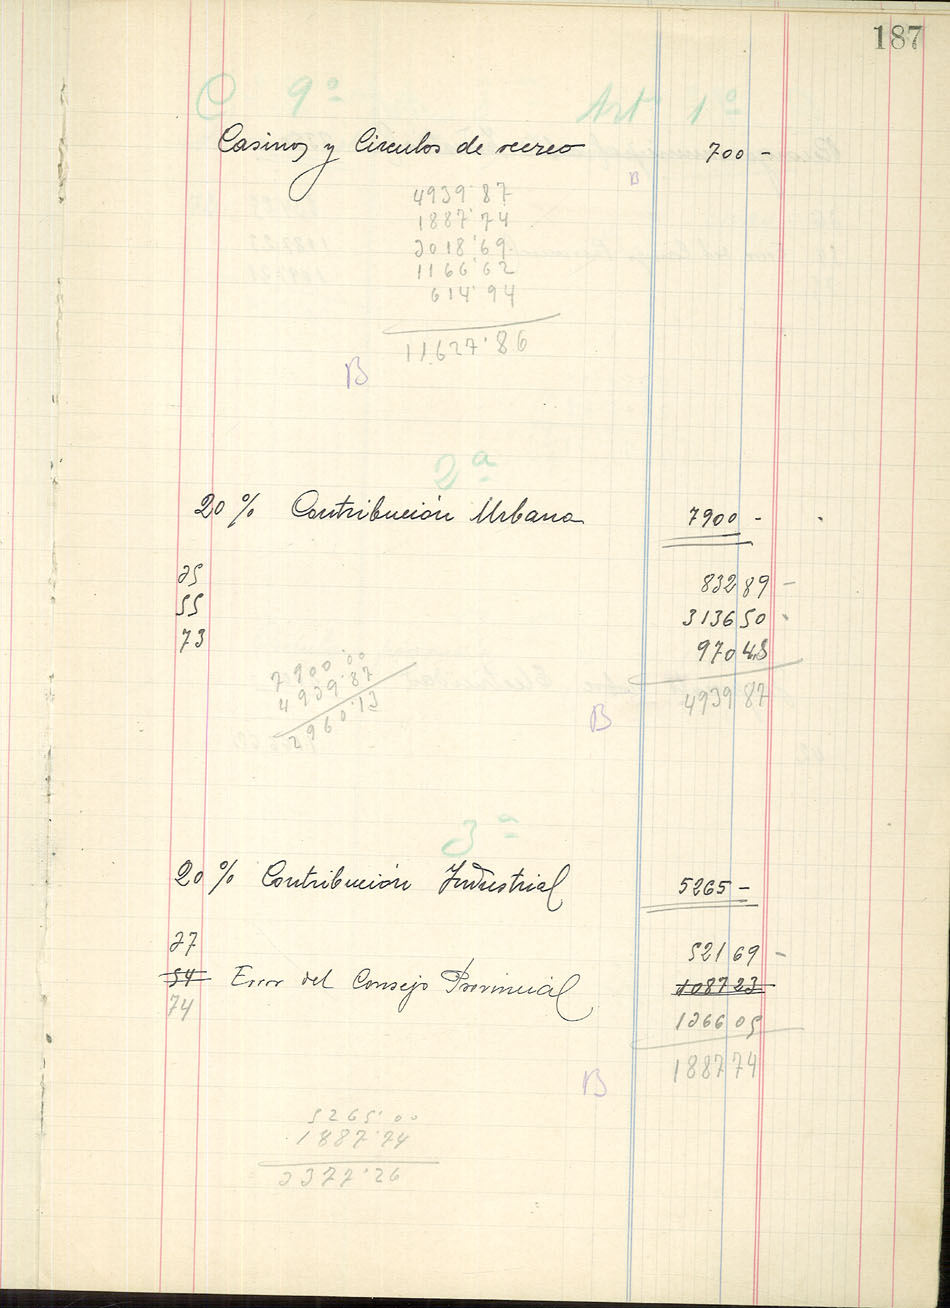 187
C 9º Art 1º
Casinos y Circulos de recreo 700 -
B
4939'87
1887'74
3018'69
1166'62
614'94
11627'86
B
2ª
20 % Contribución Urbana 7900 -
35 832 89 -
55 3136 50 -
73 970 48
7900'00
4939'87
2960'13
4939 87
B
3ª
20 % Contribución Industrial 5265 -
37 521 69 -
54 Error del Consejo Provincial 1087 23
74 1366 05
1887 74
B
5265'00
1887'74
3377'26